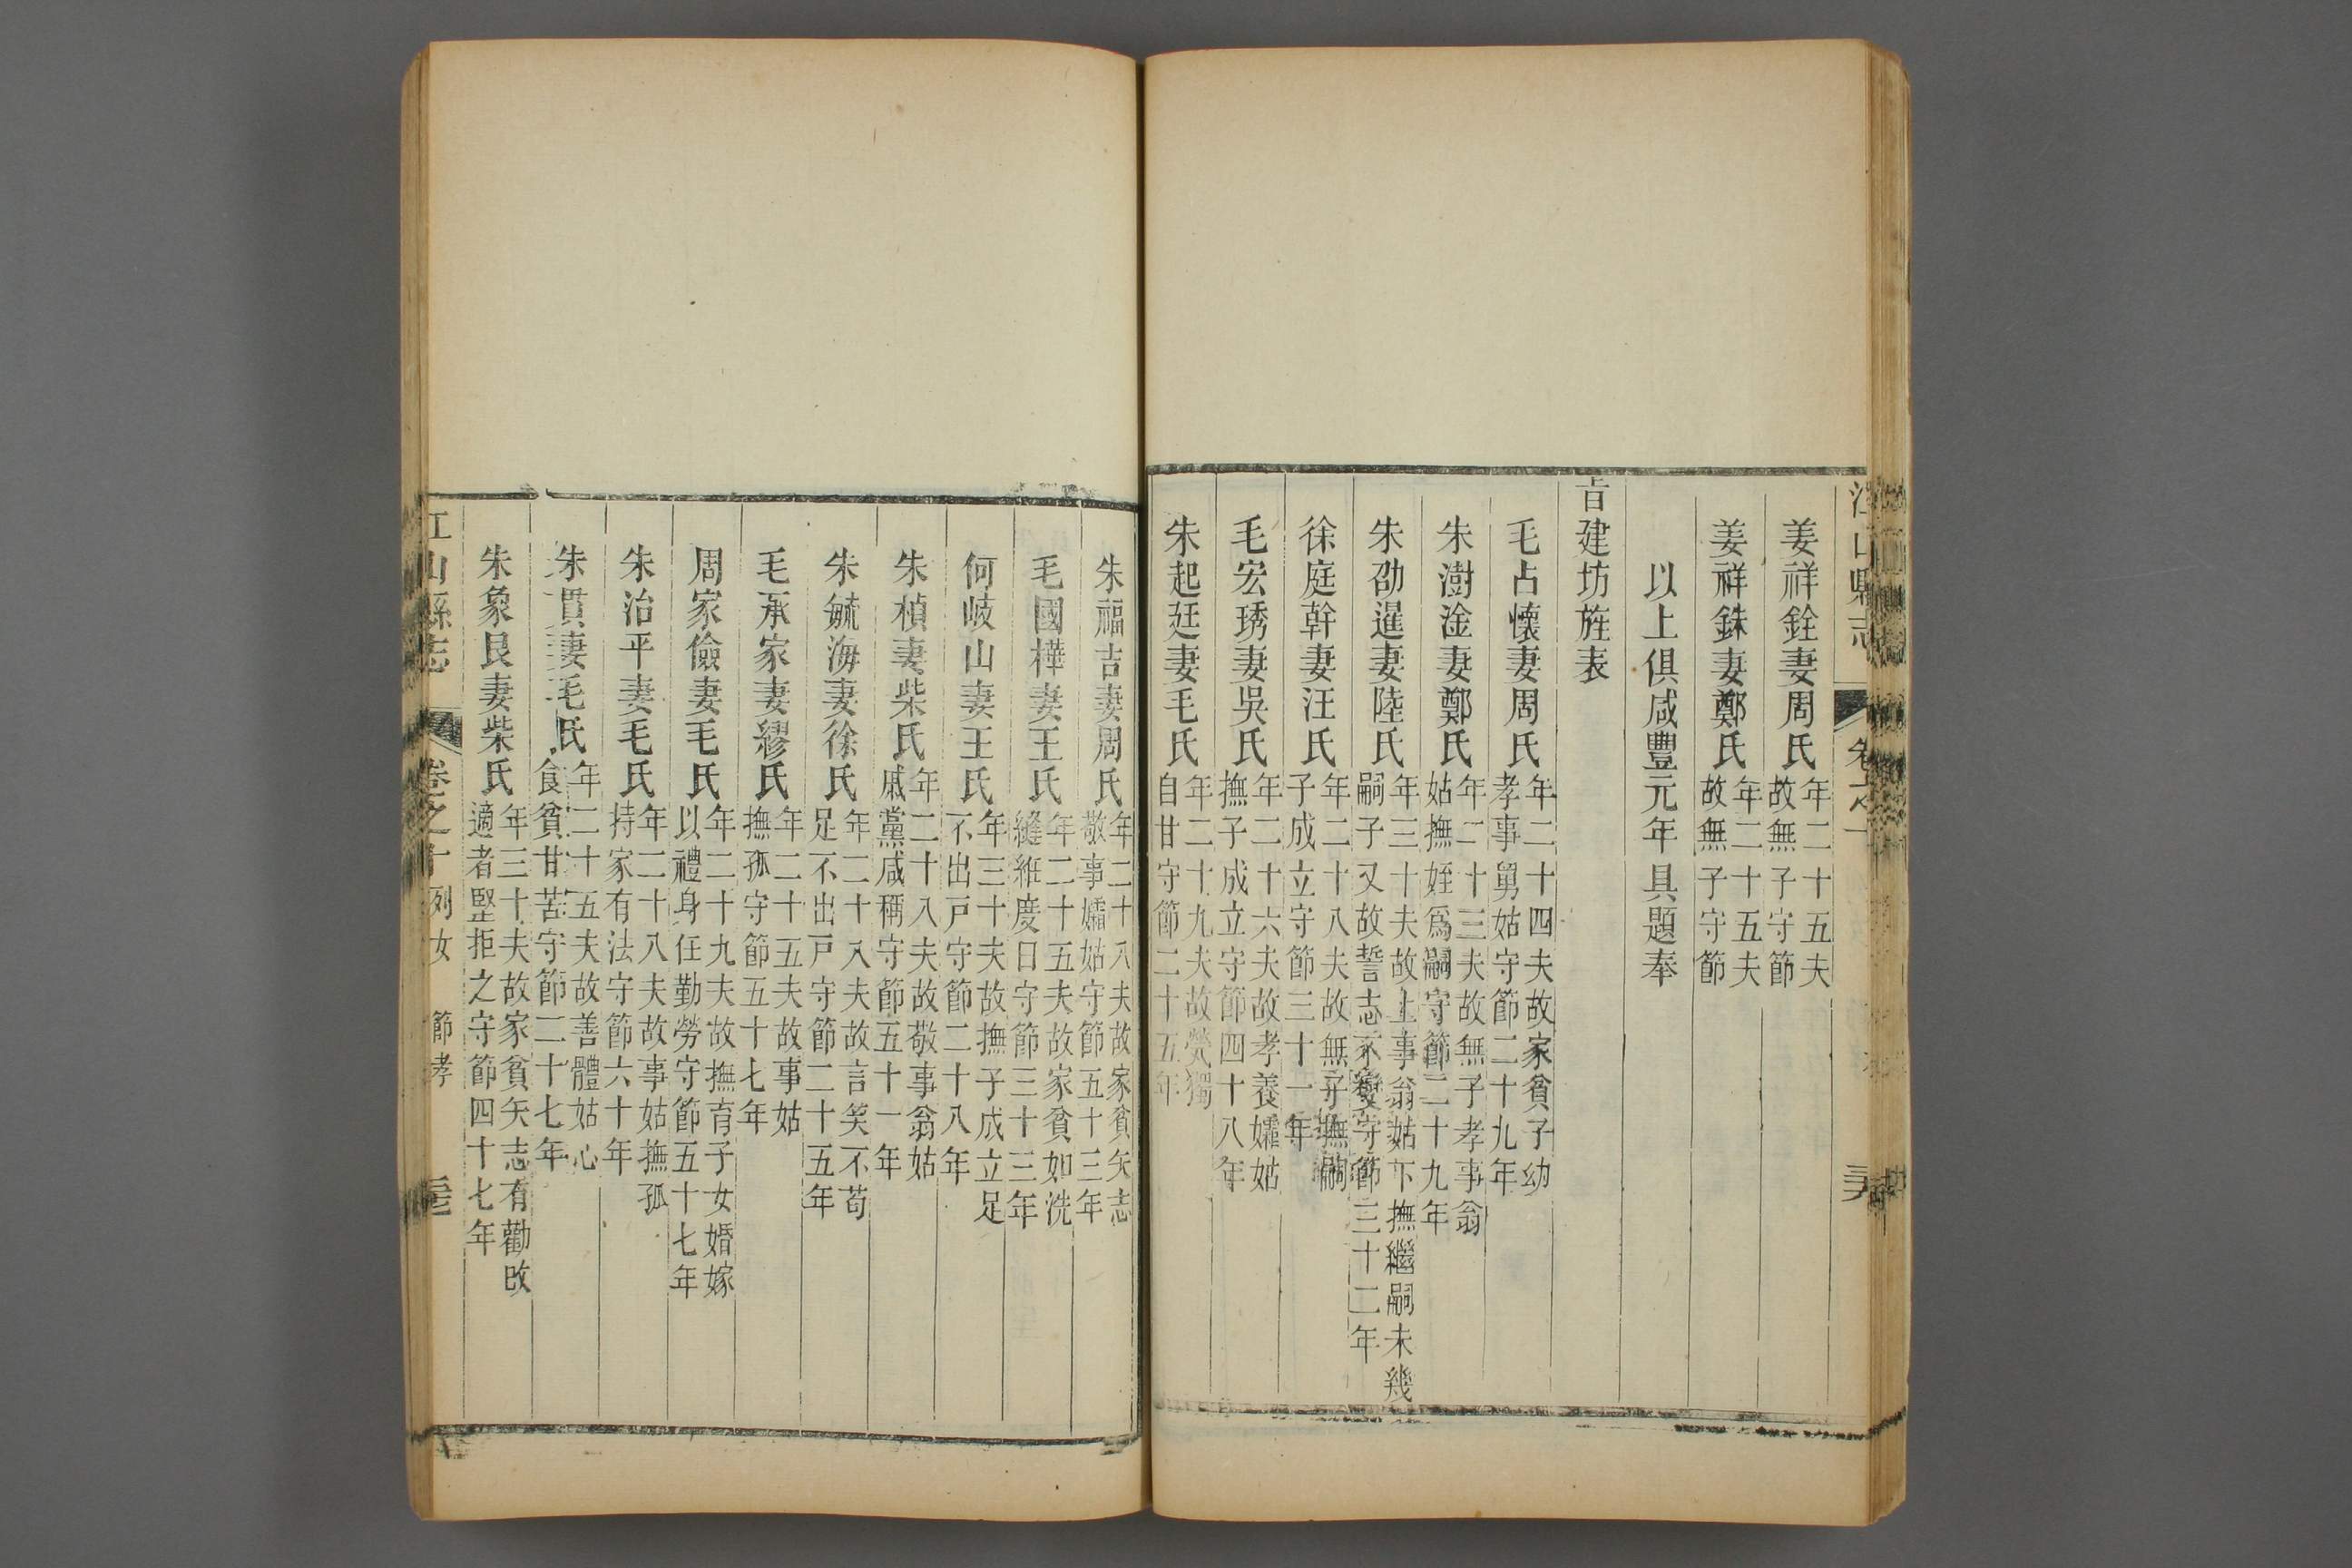 姜祥銓妻周氏年二十五夫故無子守節
姜祥銖妻鄭氏年二十五夫故無子守節
以上俱咸豐元年具題奉
旨建坊旌表
毛占懷妻周氏年二十四夫故家貧子幼孝事舅姑守節二十九年
朱澍淦妻鄭氏年二十三夫故無子孝事翁姑撫姪爲嗣守節二十九年
朱劭暹妻陸氏年三十夫故上事翁姑下撫繼嗣未幾嗣子又故誓志不變守節三十二年
徐庭幹妻汪氏年二十八夫故無子撫嗣子成立守節三十一年
毛宏琇妻吳氏年二十六夫故孝養孀姑撫子成立守節四十八年
朱起廷妻毛氏年二十九夫故煢獨自甘守節二十五年
朱福吉妻周氏年二十八夫故家貧矢志敬事孀姑守節五十三年
毛國樺妻王氏年二十五夫故家貧如洗縫維度日守節三十三年
何岐山妻王氏年三十夫故撫子成立足不出戸守節二十八年
朱楨妻柴氏年二十八夫故敬事翁姑戚黨咸稱守節五十一年
朱毓海妻徐氏年二十八夫故言笑不苟足不出戸守節二十五年
毛承家妻繆氏年二十五夫故事姑撫孤守節五十七年
周家儉妻毛氏年二十九夫故撫育子女婚嫁以禮身任勤勞守節五十七年
朱治平妻毛氏年二十八夫故事姑撫孤持家有法守節六十年
朱貫妻毛氏年二十五夫故善體姑心食貧甘苦守節二十七年
朱象艮妻柴氏年三十夫故家貧矢志有勸改適者堅拒之守節四十七年
江山縣志 卷之十 列女 節孝